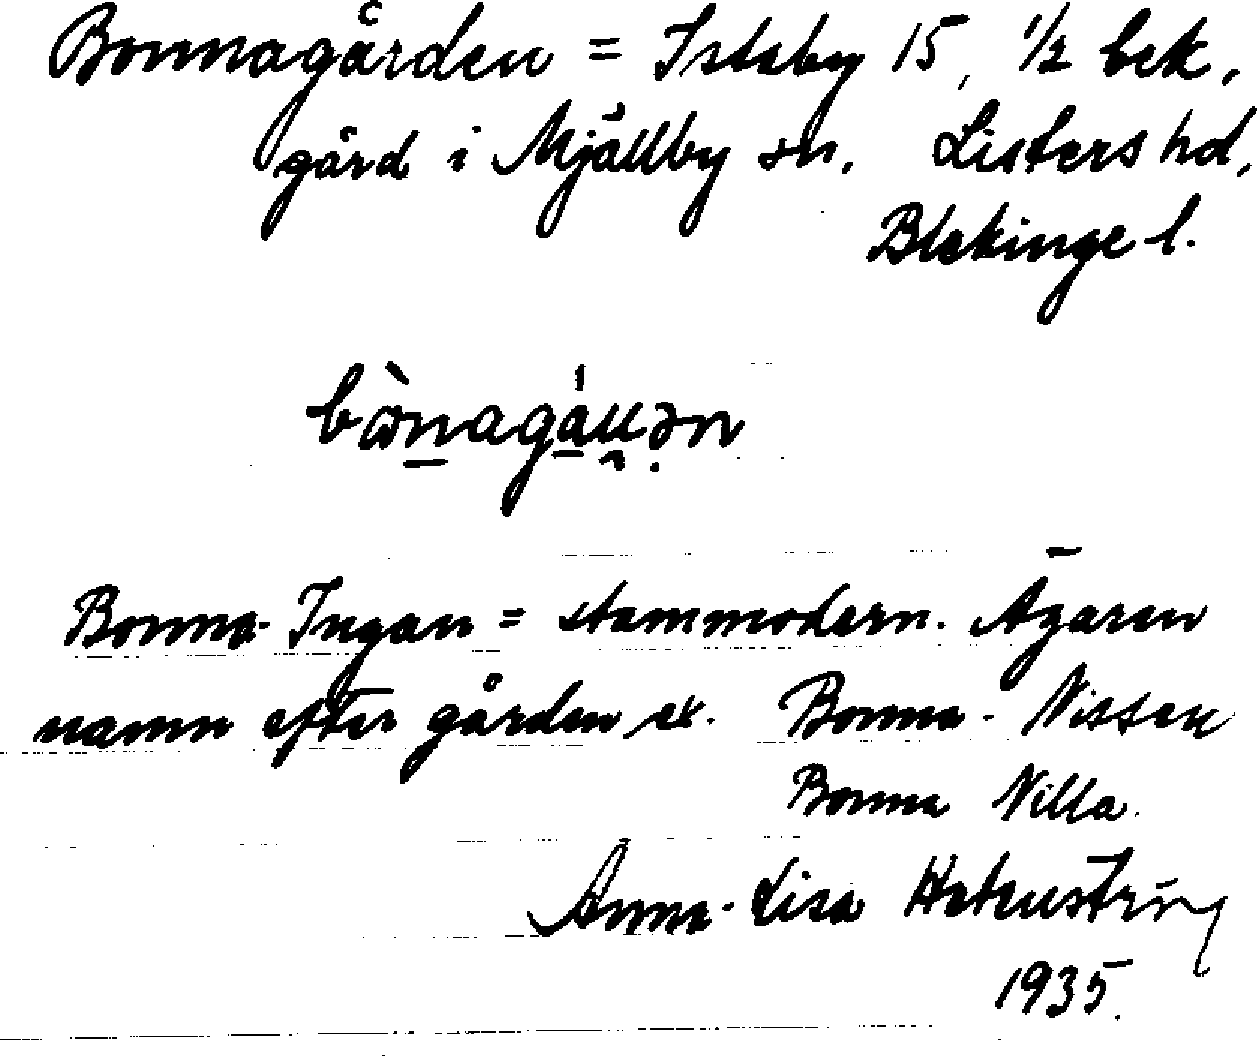 Bonnagården = Istaby 15, 1/2 bek,
gård i Mjällby sn, Listers hd,
Blekinge l.
Bonna-Ingan = stammodern. Ägaren
namn efter gården ex. Bonna-Nissen
Bonna Nilla.
Anna-Lisa
1935.